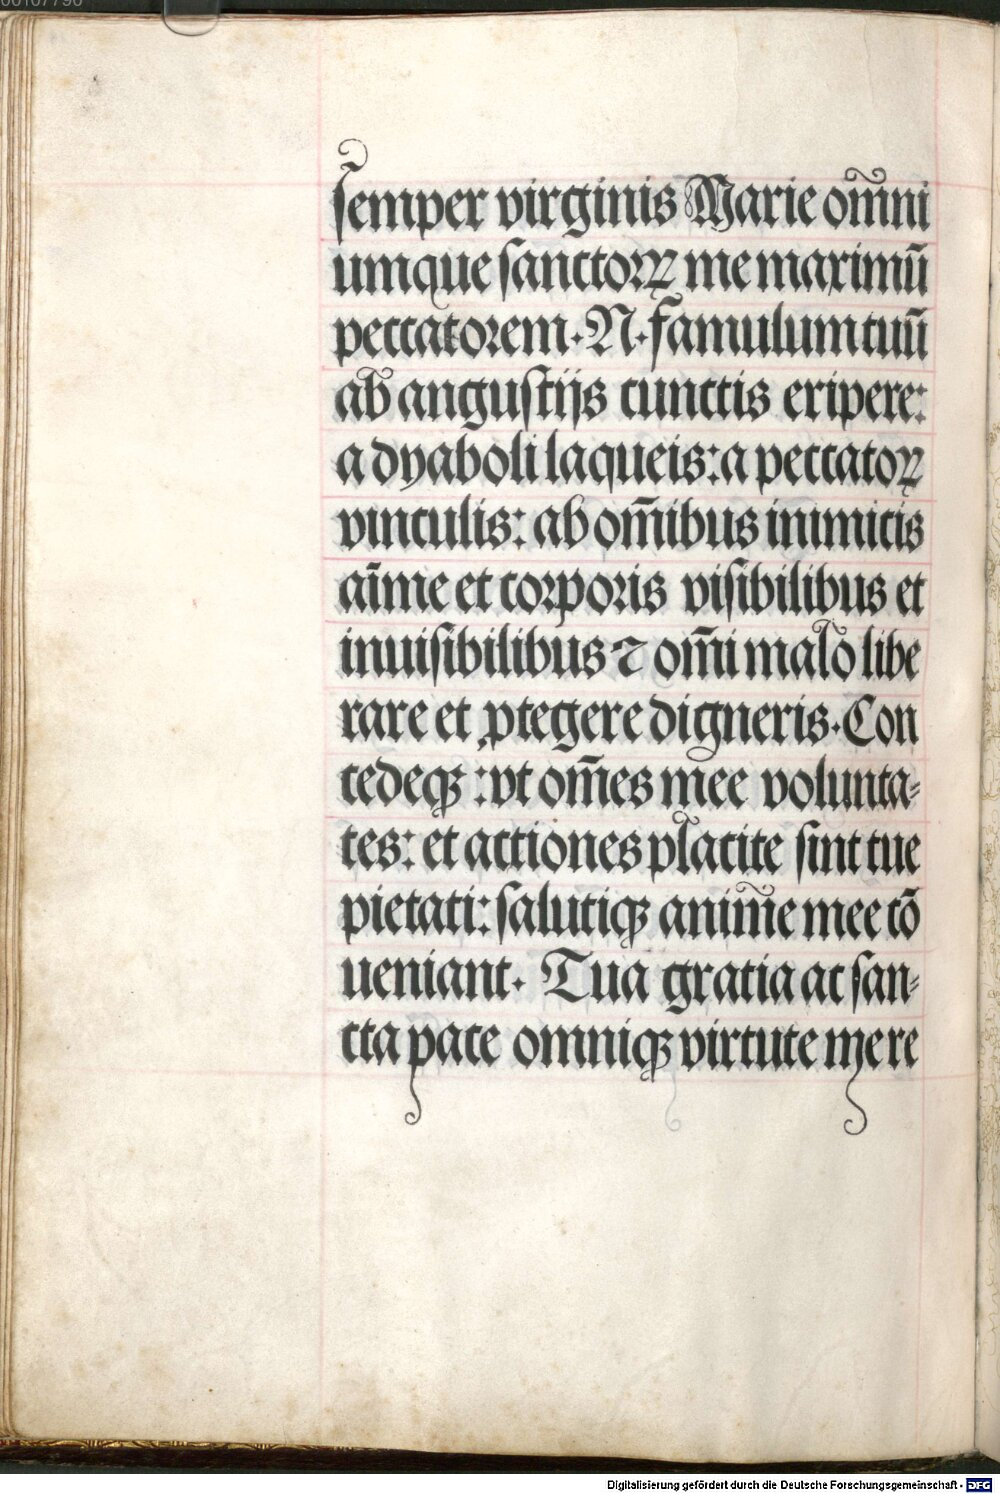 00107796
ſemper virginis Marie om̃ni
umque ſanctorꝝ me maximū
peccatorem. N. famulum tuū
ab anguſtijs cunctis eripere:
a dyaboli laqueis: a peccatoꝝ
vinculis: ab om̄ibus inimicis
aīme et corporis viſibilibus et
inuiſibilibus ⁊ om̄i malo libe
rare et ꝓtegere digneris. Con
cedeqꝫ: vt om̄es mee volunta⸗
tes: et actiones placite ſint tue
pietati: ſalutiqꝫ anim̃e mee cō
ueniant. Tua gratia ac ſan⸗
cta pace omniqꝫ virtute mere
Digitalisierung gefördert durch die Deutsche Forschungsgemeinschaft - DFG